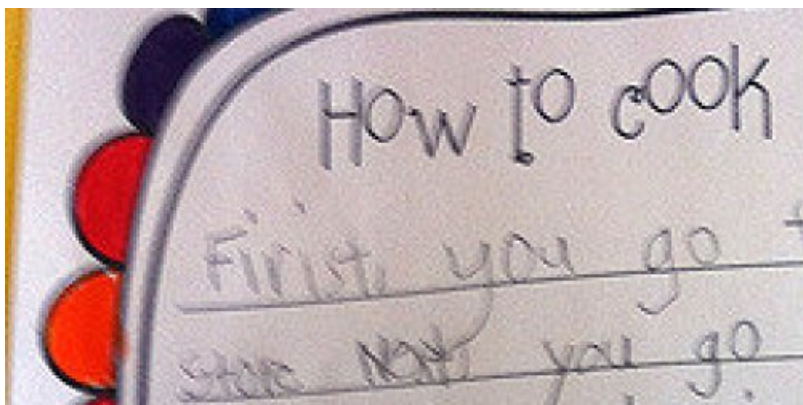 How to cook
First, you go t
store Next, you go